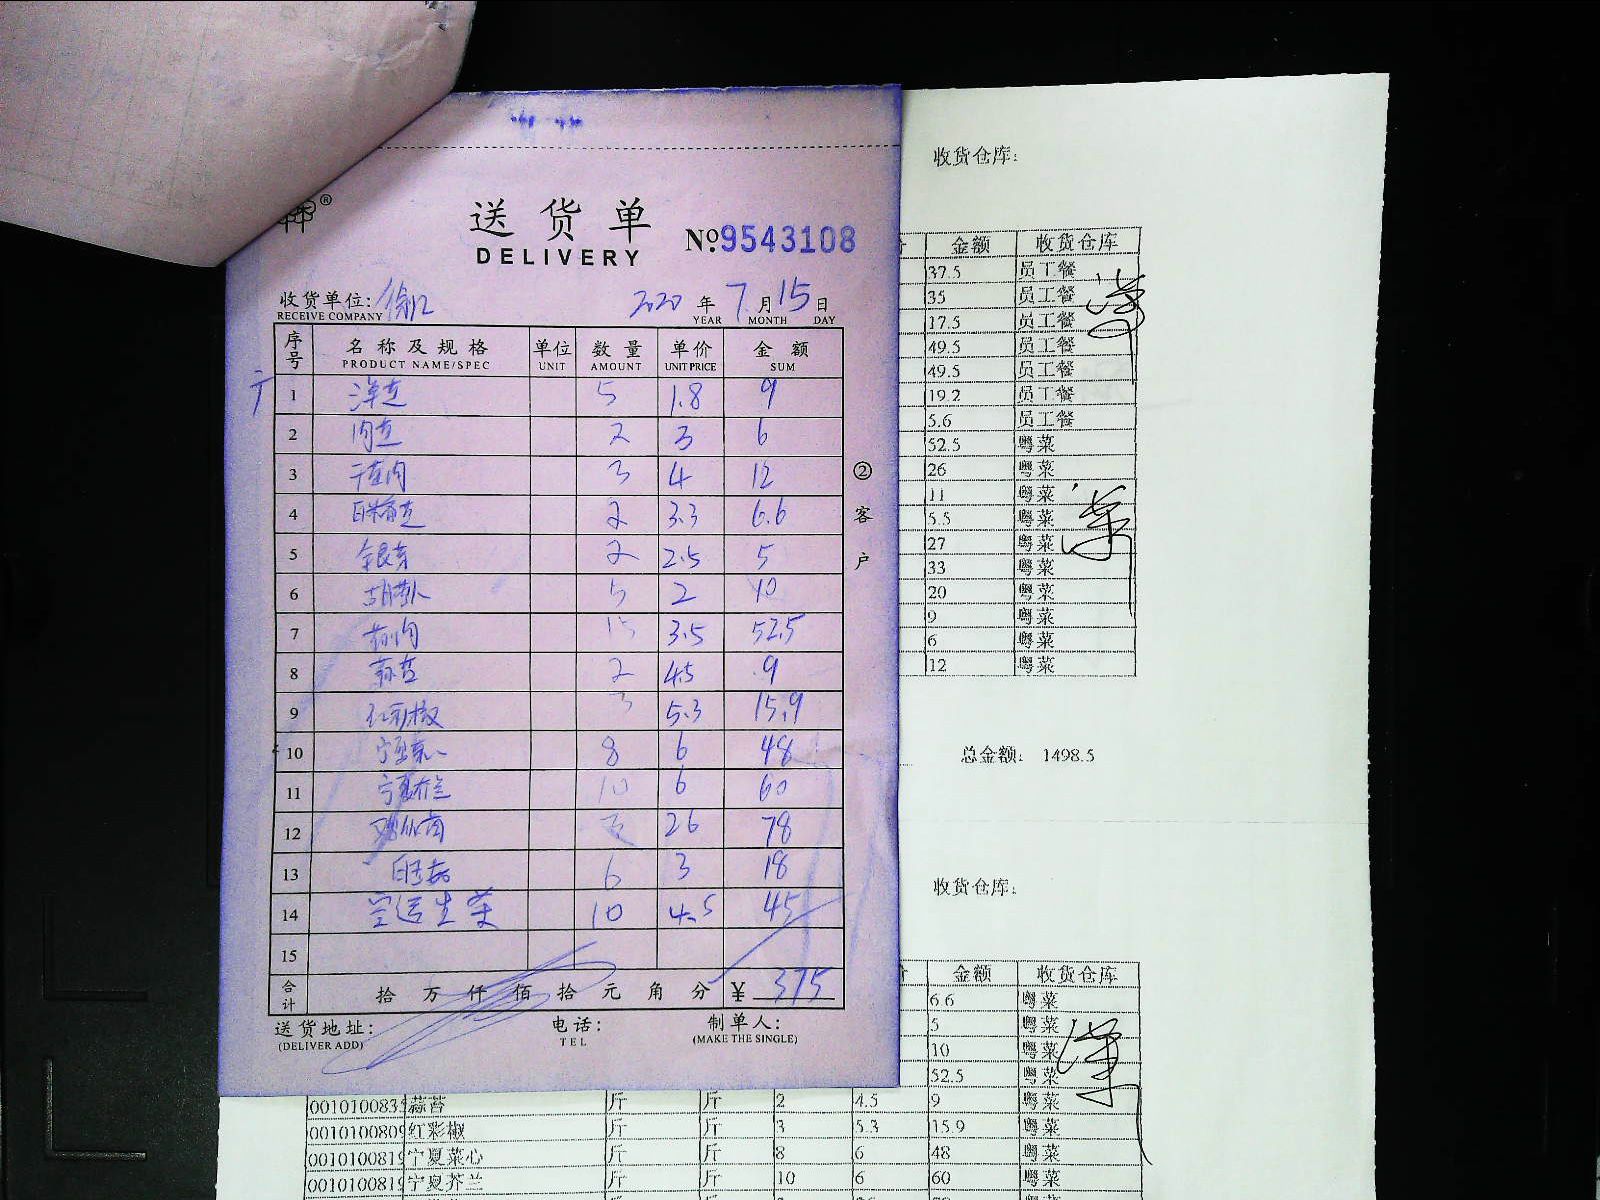 送货单
DELIVERY
No.9543108
收货单位:
RECEIVE COMPANY
2020 年 7 月 15 日
YEAR MONTH DAY
序号 名称及规格 单位 数量 单价 金额
PRODUCT NAME/SPEC UNIT AMOUNT UNIT PRICE SUM
1 洋芫 5 1.8 9
2 肉芫 2 3 6
3 3 4 12
4 2 3.3 6.6
5 银芽 2 2.5 5
6 胡萝卜 5 2 10
7 15 3.5 52.5
8 蒜苔 2 4.5 9
9 红彩椒 3 5.3 15.9
10 宁夏菜心 8 6 48
11 宁夏芥兰 10 6 60
12 3 26 78
13 6 3 18
14 空运生菜 10 4.5 45
15
合计 拾 万 仟 佰 拾 元 角 分 ¥ 375
送货地址: 电话: 制单人:
(DELIVER ADD) TEL (MAKE THE SINGLE)
②客户
收货仓库:
金额 收货仓库
37.5 员工餐
35 员工餐
17.5 员工餐
49.5 员工餐
49.5 员工餐
19.2 员工餐
5.6 员工餐
52.5 粤菜
26 粤菜
11 粤菜
5.5 粤菜
27 粤菜
33 粤菜
20 粤菜
9 粤菜
6 粤菜
12 粤菜
总金额: 1498.5
收货仓库:
金额 收货仓库
6.6 粤菜
5 粤菜
10 粤菜
52.5 粤菜
0010100835 蒜苔 斤 斤 2 4.5 9 粤菜
0010100809 红彩椒 斤 斤 3 5.3 15.9 粤菜
0010100819 宁夏菜心 斤 斤 8 6 48 粤菜
0010100819 宁夏芥兰 斤 斤 10 6 60 粤菜